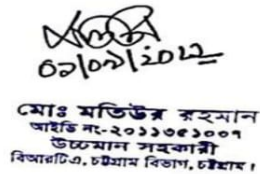 ০১/০৯/২০২২
মোঃ মতিউর রহমান
আইডি নং-২০১১৩৫১০০৭
উচ্চমান সহকারী
বিআরটিএ, চট্টগ্রাম বিভাগ, চট্টগ্রাম।